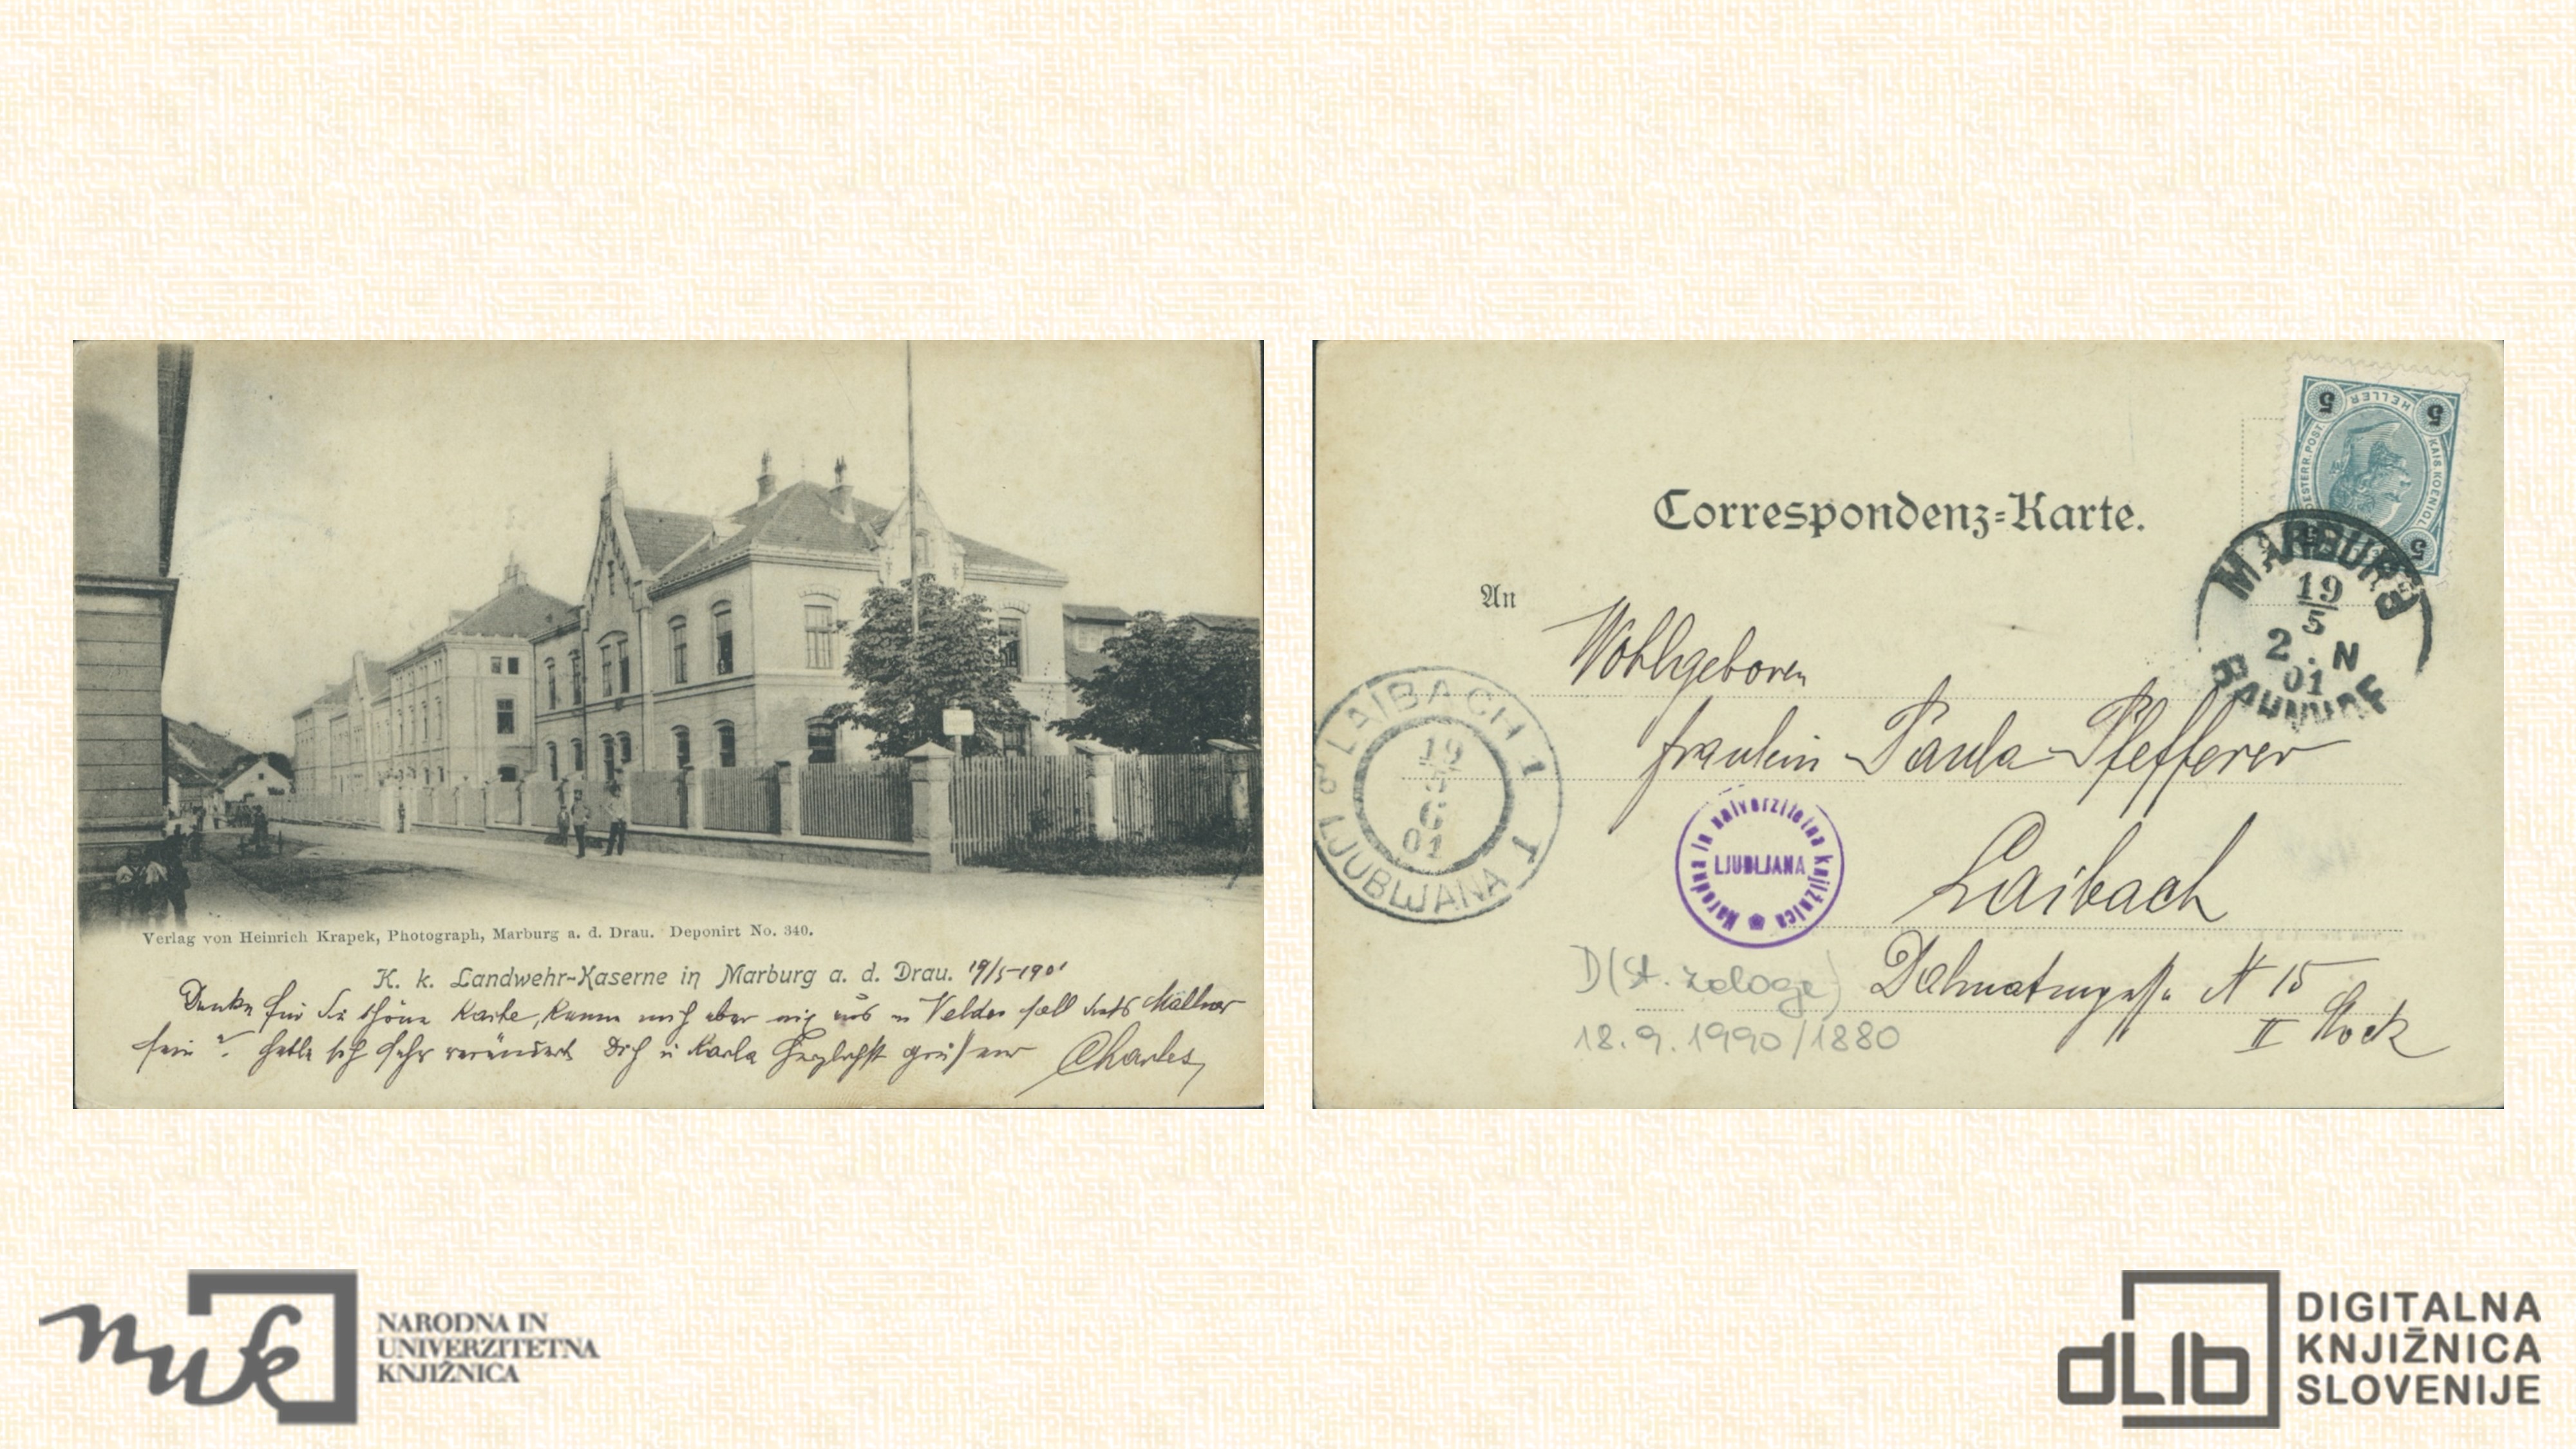 Verlag von Heinrich Krapek, Photograph, Marburg a. d. Drau. Deponirt No. 340.
K. k. Landwehr-Kaserne in Marburg a. d. Drau. 19/5 1901
Danke für die schöne Karte, kenn mich aber nig aus in Veldes soll das
sein? habt sich sehr verändert Dich u Karla herzlichst grüßen Charles
Correspondenz-Karte.
5 HELLER 5
KAIS. KOENIGL. OESTERR. POST
5
MARBURG
19/5
2. N
01
BAHNHOF
An
Wohlgeboren
fraulein Paula Pfefferer
Laibach
Dalmatingasse N 15
II Stock
LAIBACH 1
19
5
6
01
LJUBLJANA 1
Narodna in univerzitetna knjižnica
LJUBLJANA
D(st. zaloge)
18.9.1990/1880
nuk
NARODNA IN
UNIVERZITETNA
KNJIŽNICA
dLib
DIGITALNA
KNJIŽNICA
SLOVENIJE